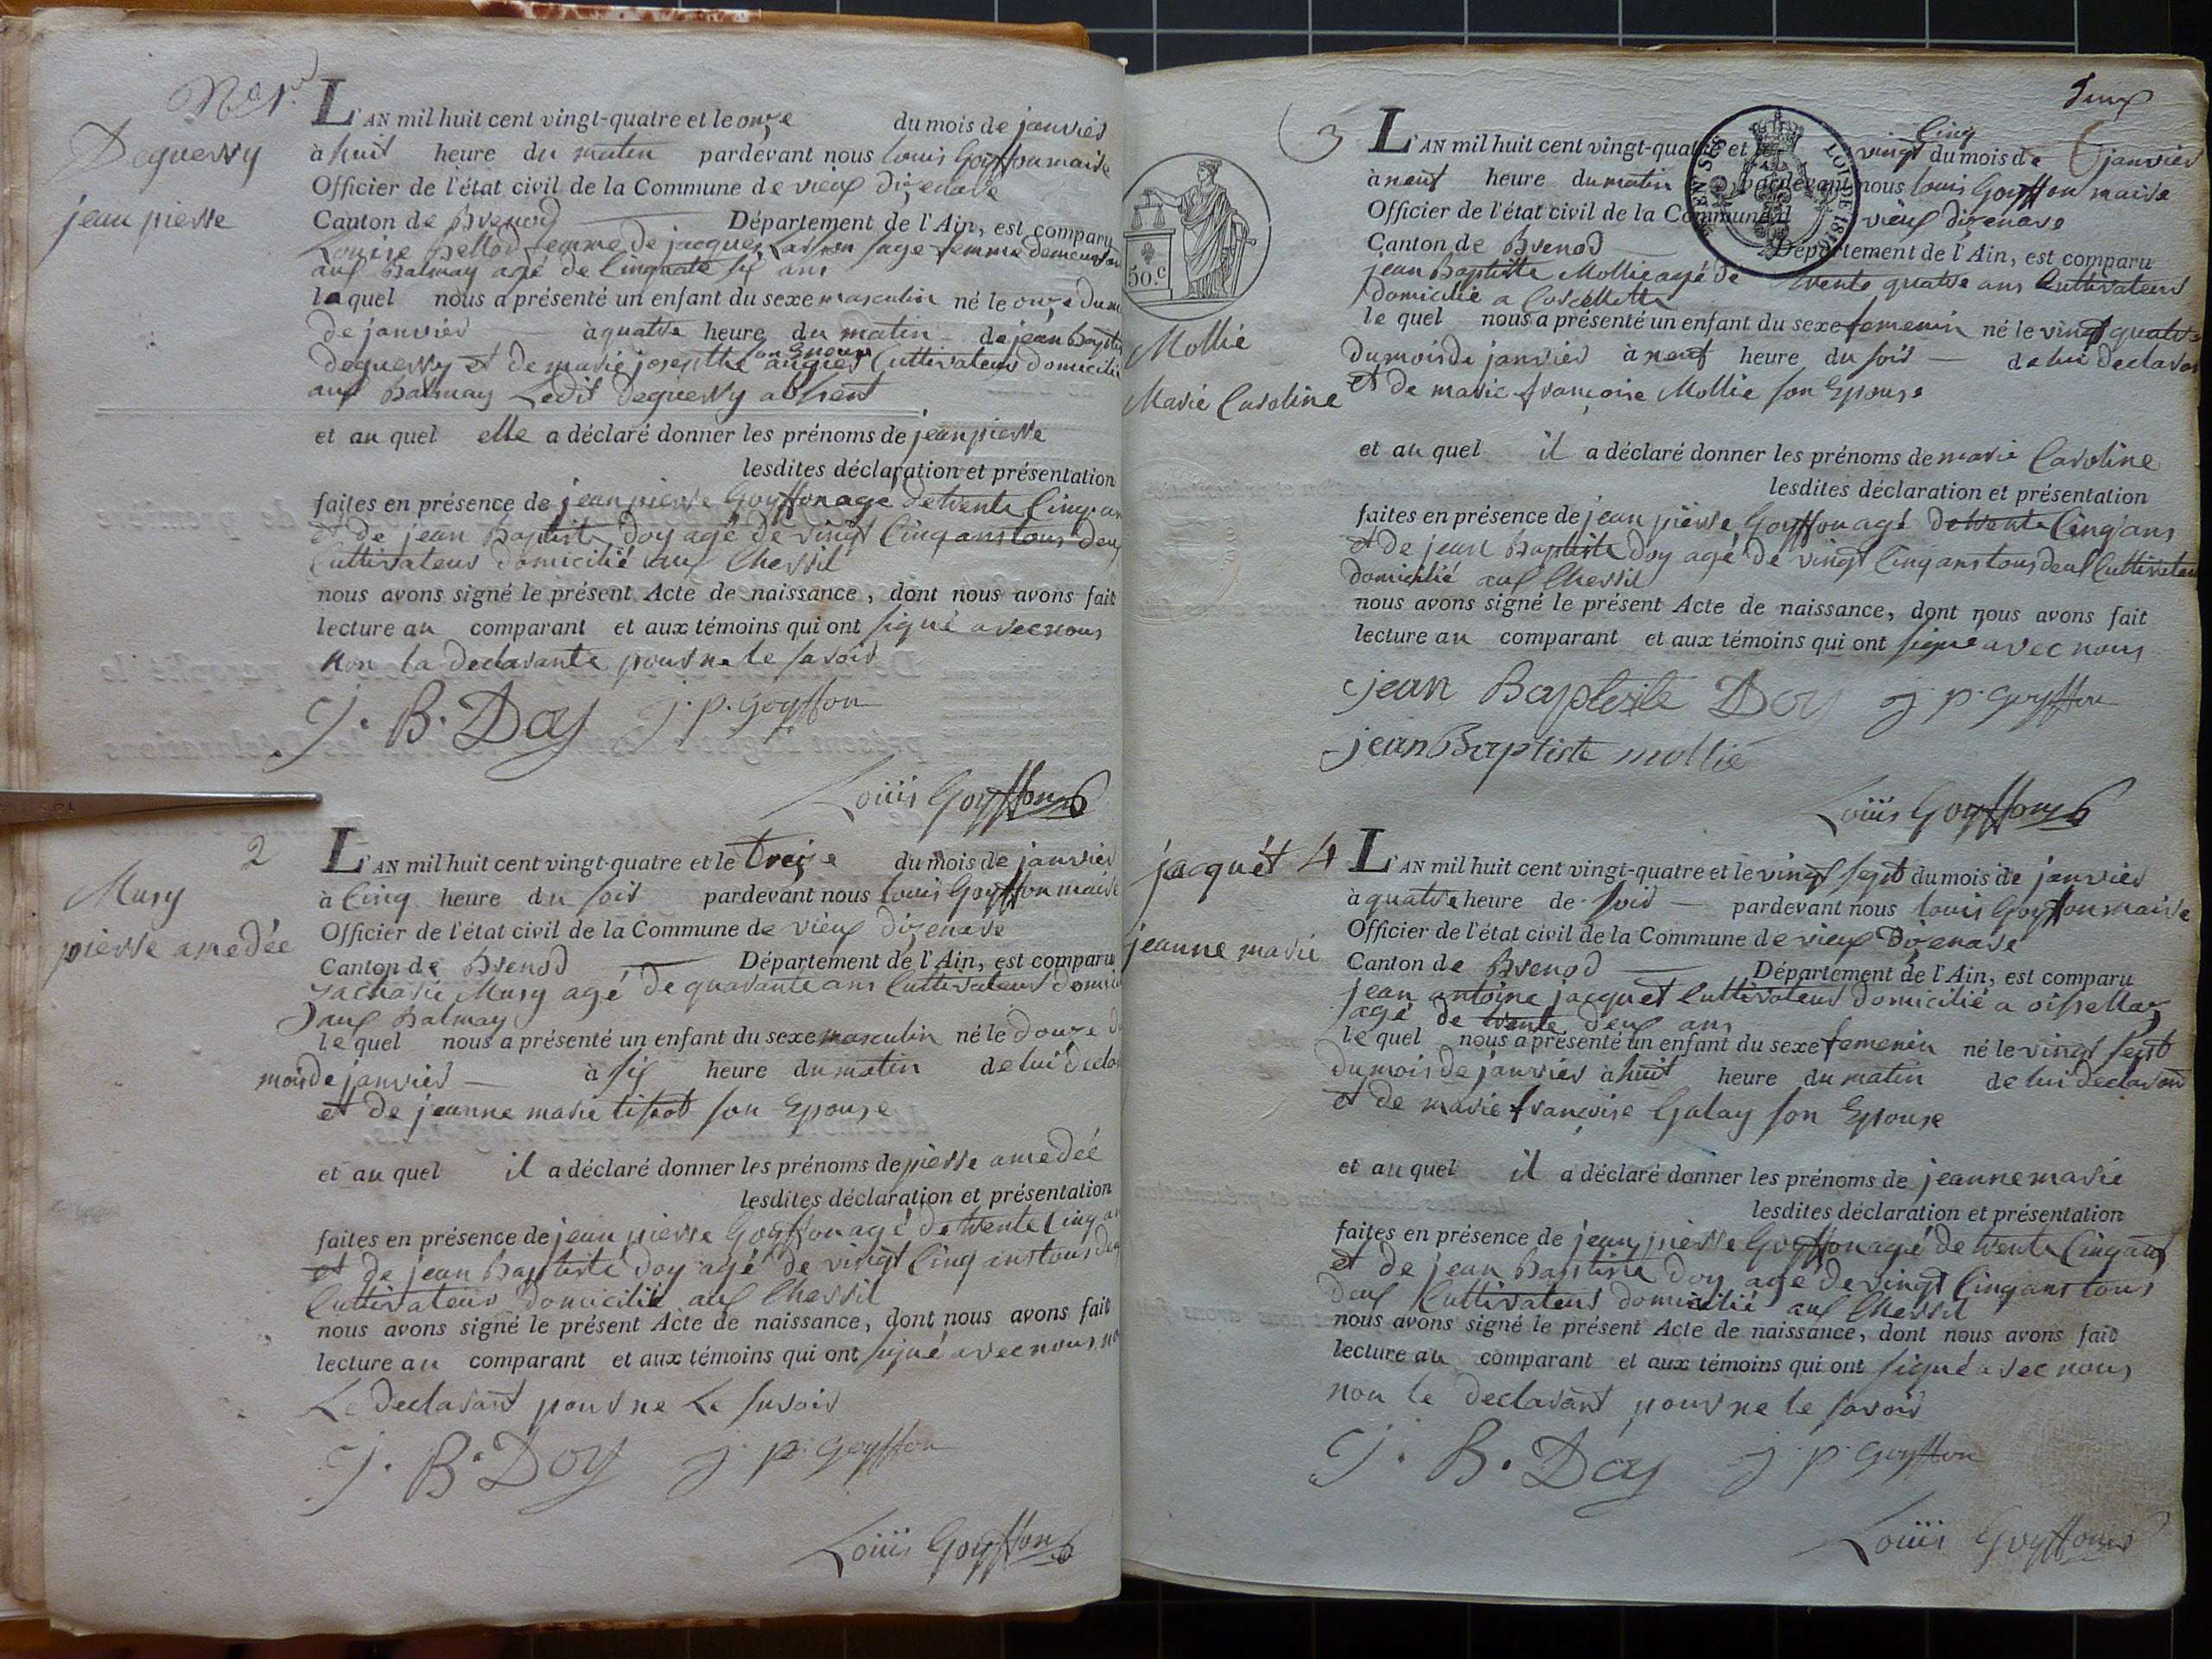 No 1.
Deguerry
jean pierre
L'AN mil huit cent vingt-quatre et le onze du mois de janvier
à huit heure du matin pardevant nous louis Goyffon maire
Officier de l'état civil de la Commune de vieux dizenave
Canton de Brenod Département de l'Ain, est comparu
Louise femme de jacques sage femme
aux Balmay agé de Cinquate six ans
la quel nous a présenté un enfant du sexe masculin né le onze du
de janvier à quatre heure du matin de jean Baptis
son Epouse
deguerry et de marie josephthe Cultivateur domicilié
aux Balmay Ledit deguerry absent
et au quel elle a déclaré donner les prénoms de jean pierre
lesdites déclaration et présentation
faites en présence de jean pierre Goyffon agé de trente Cinq an
et de jean Baptiste Doy agé de vingt Cinq ans tous deux
Cultivateur domicilié aux Chevril
nous avons signé le présent Acte de naissance, dont nous avons fait
lecture au comparant et aux témoins qui ont signé avec nous
non la declarante pour ne le savoir
J. B. Doy j. p. goyffon
Loüis Goyffon
2
Mury
pierre amedée
L'AN mil huit cent vingt-quatre et le treize du mois de janvier
à Cinq heure du soir pardevant nous louis Goyffon maire
Officier de l'état civil de la Commune de vieux dizenave
Canton de Brenod Département de l'Ain, est comparu
zacharie Mury agé de quarante ans Cultivateur domici
aux Balmay
le quel nous a présenté un enfant du sexe masculin né le douze du
mois de janvier à six heure du matin de lui declar
et de jeanne marie tissot son Epouse
et au quel il a déclaré donner les prénoms de pierre amedée
lesdites déclaration et présentation
faites en présence de jean pierre Goyffon agé de trente Cinq an
et de jean Baptiste Doy agé de vingt Cinq ans tous deux
Cultivateur domicilié aux Chevril
nous avons signé le présent Acte de naissance, dont nous avons fait
lecture au comparant et aux témoins qui ont signé avec nous no
Le declarant pour ne Le savoir
J. B. Doy j. p. goyffon
Loüis Goyffon
deux
3
50.c
Mollie
Marie Caroline
L'AN mil huit cent vingt-quatre et le vingt Cinq du mois de janvier
à neuf heure du matin pardevant nous louis Goyffon maire
Officier de l'état civil de la Commune d vieux dizenave
Canton de Brenod Département de l'Ain, est comparu
jean Baptiste Mollie agé de trente quatre ans Cultivateur
domicilié a
le quel nous a présenté un enfant du sexe femenin né le vingt quatre
du mois de janvier à neuf heure du soir de lui declaran
et de marie françoise Mollie son Epouse
et au quel il a déclaré donner les prénoms de marie Caroline
lesdites déclaration et présentation
faites en présence de jean pierre Goyffon agé de trente Cinq ans
et de jean Baptiste Doy agé de vingt Cinq ans tous deux Cultivateu
domicilié aux Chevril
nous avons signé le présent Acte de naissance, dont nous avons fait
lecture au comparant et aux témoins qui ont signé avec nous
jean Baptiste Doy j p goyffon
jean Baptiste mollie
Loüis Goyffon
jacquet 4
jeanne marie
L'AN mil huit cent vingt-quatre et le vingt sept du mois de janvier
à quatre heure de soir pardevant nous louis Goyffon maire
Officier de l'état civil de la Commune de vieux Dizenave
Canton de Brenod Département de l'Ain, est comparu
jean antoine jacquet Cultivateur domicilié a oissellaz
agé de trente deux ans
le quel nous a présenté un enfant du sexe femenin né le vingt sept
du mois de janvier à huit heure du matin de lui declarant
et de marie françoise Galay son Epouse
et au quel il a déclaré donner les prénoms de jeanne marie
lesdites déclaration et présentation
faites en présence de jean pierre Goyffon agé de trente Cinq ans
et de jean Baptiste Doy agé de vingt Cinq ans tous
deux Cultivateur domicilié aux Chevril
nous avons signé le présent Acte de naissance, dont nous avons fait
lecture au comparant et aux témoins qui ont signé avec nous
non le declarant pour ne le savoir
J. B. Doy j p goyffon
Loüis Goyffon